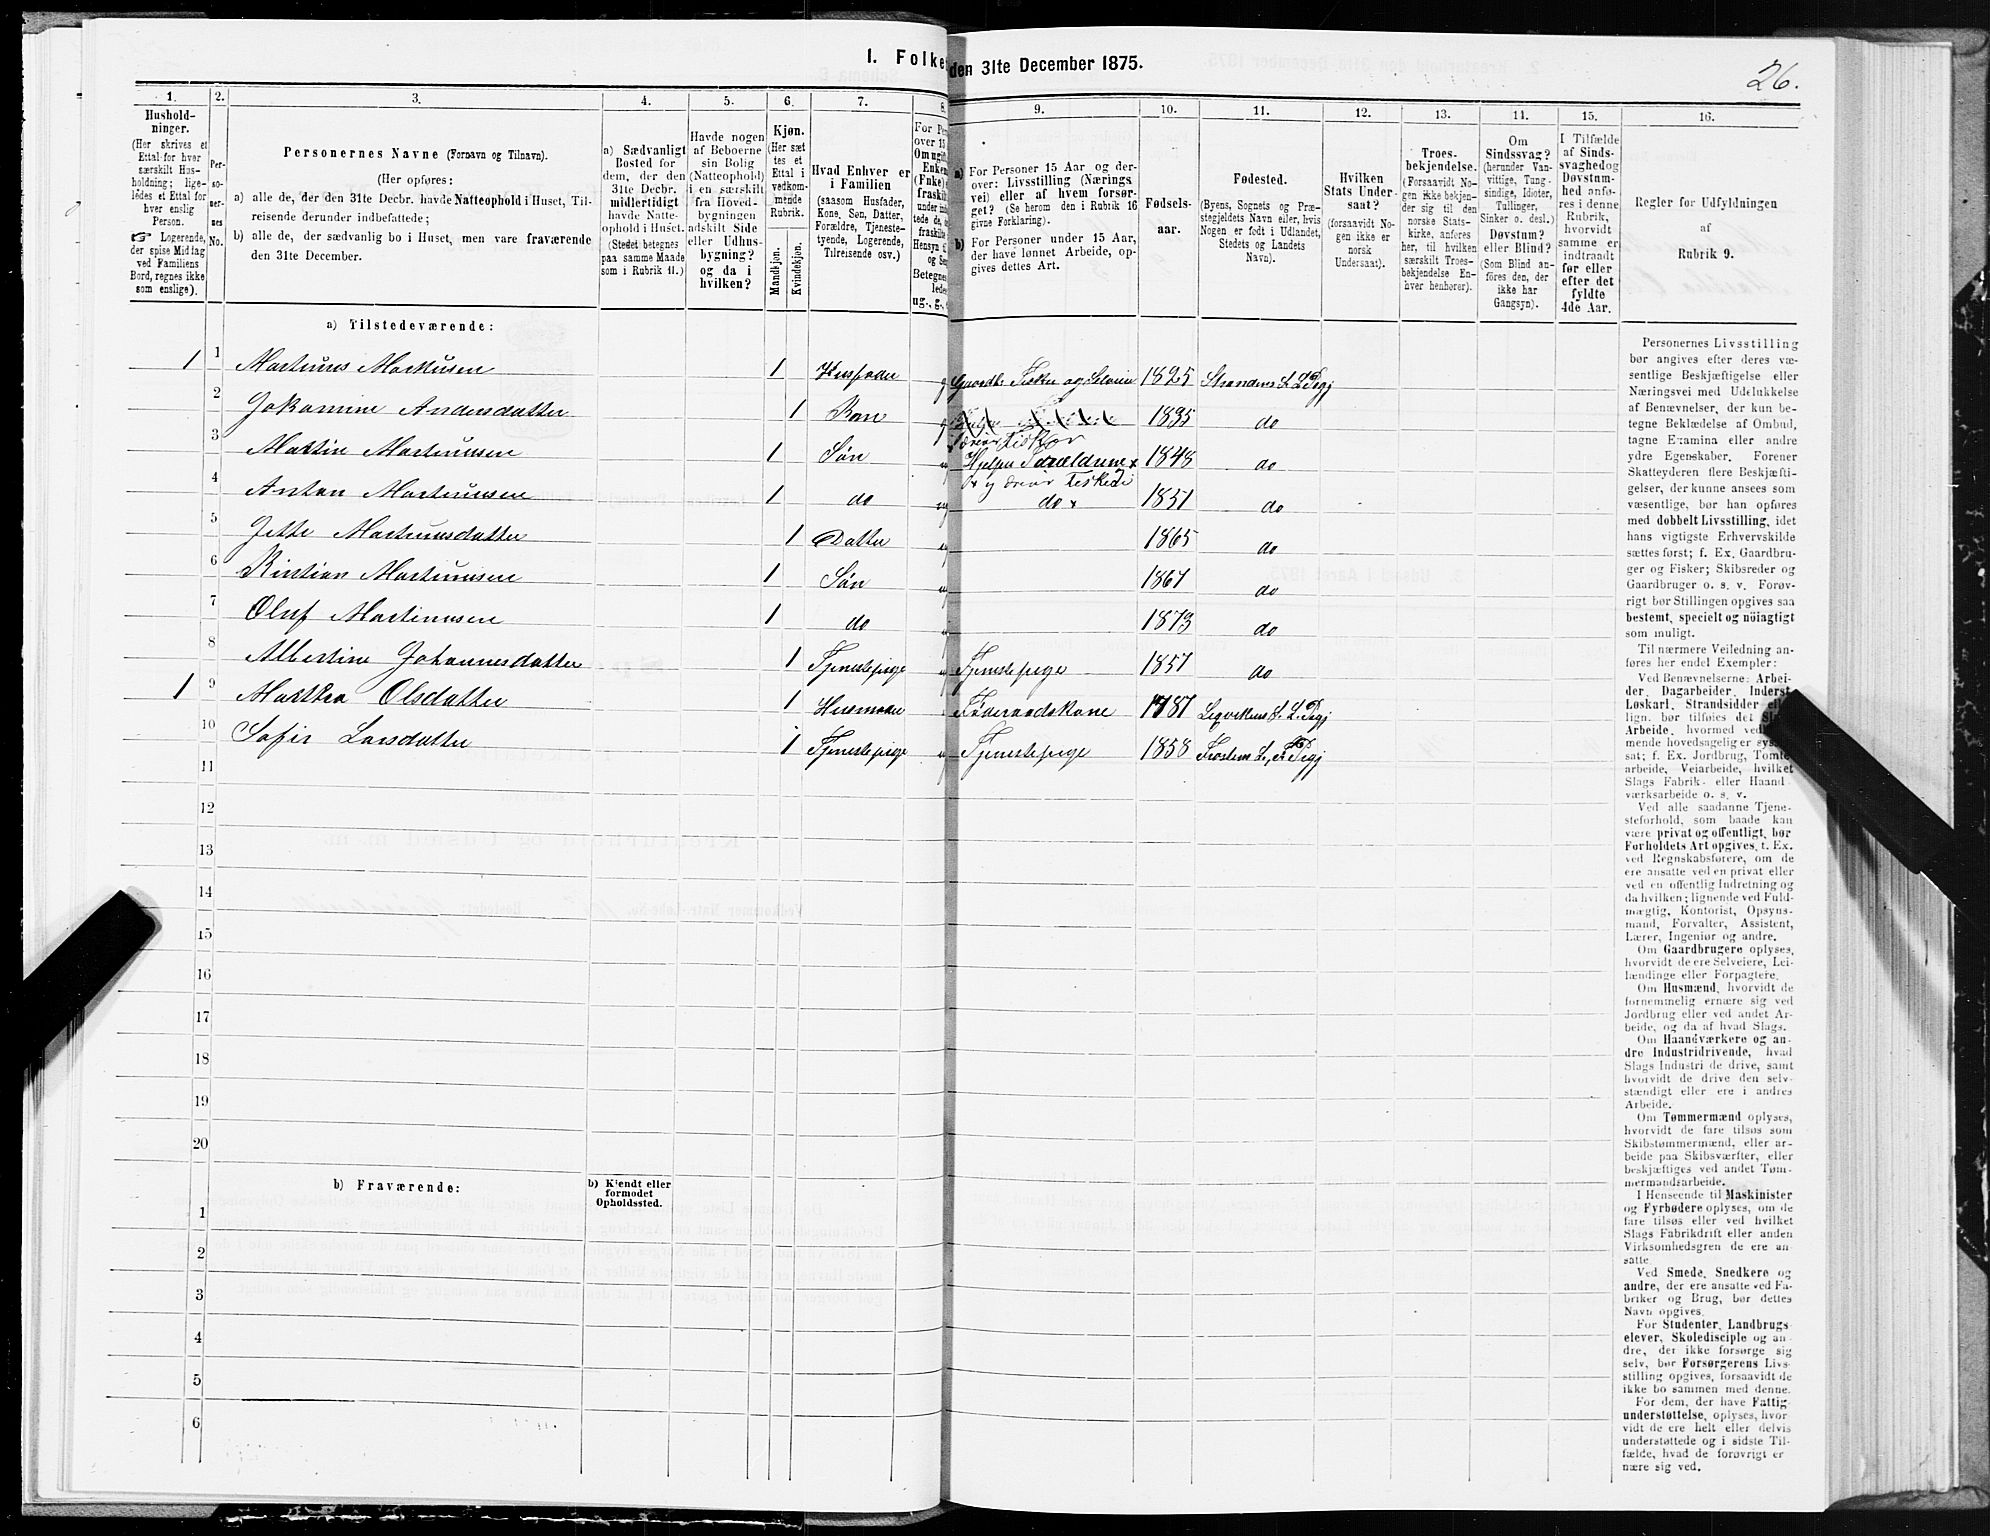 I. Folke den 31te December 1875.
26.
1.
2.
3.
4.
5.
6.
7.
8.
9.
10.
11.
12.
13.
14.
15.
16.
Hushold-
ninger.
(Her skrives et
Ettal for hver
særskilt Hus-
holdning; lige-
ledes et Ettal for
hver enslig
Person.
☞ Logerende,
der spise Middag
ved Familiens
Bord, regnes ikke
som enslige).
Per-
so-
ner-
nes
No.
Personernes Navne (Fornavn og Tilnavn).
(Her opføres:
a) alle de, der den 31te Decbr. havde Natteophold i Huset, Til-
reisende derunder indbefattede;
b) alle de, der sædvanlig bo i Huset, men vare fraværende
den 31te December.
a) Sædvanligt
Bosted for
dem, der den
31te Decbr.
midlertidigt
havde Natte-
ophold i Huset.
(Stedet betegnes
paa samme Maade
som i Rubrik 11.)
Havde nogen
af Beboerne
sin Bolig
(Natteophold)
i en særskilt
fra Hoved-
bygningen
adskilt Side
eller Udhus-
bygning?
og da i
hvilken?
Kjøn.
(Her sæt
tes et
Ettal i
vedkom-
mende
Rubrik.
Mandkjøn.
Kvindekjøn.
Hvad Enhver er
i Familien
(saasom Husfader,
Kone, Søn, Datter,
Forældre, Tjeneste-
tyende, Logerende,
Tilreisende osv.)
For Per
over 15
Om ugift
Enkem
(Enke)
fraskil
under ind
tede de, s
fraskilte
Hensyn t
og Se
Betegnes
lede
ug., g.,
a) For Personer 15 Aar og der-
over: Livsstilling (Nærings
vei) eller af hvem forsør-
get? (Se herom den i Rubrik 16
givne Forklaring).
b) For Personer under 15 Aar,
der have lønnet Arbeide, op-
gives dettes Art.
Fødsels-
aar.
Fødested.
(Byens, Sognets og Præ-
stegjeldets Navn eller, hvis
Nogen er født i Udlandet,
Stedets og Landets
Navn).
Hvilken
Stats Under-
saat?
(forsaavidt No-
gen ikke er
norsk
Undersaat).
Troes-
bekjendelse.
(Forsaavidt No-
gen ikke bekjen-
der sig til den
norske Stats-
kirke, anføres
her, til hvilken
særskilt Troes-
bekjendelse En-
hver henhører).
Om
Sindssvag?
(herunder Van-
vittige, Tung-
sindige, Idioter,
Tullinger,
Sinker o. desl.)
Døvstum?
eller Blind?
(Som Blind an-
føres den, der
ikke har
Gangsyn).
I Tilfælde
af Sinds-
svaghed og
Døvstum-
hed anfø-
res i denne
Rubrik,
hvorvidt
samme er
indtraadt
før eller
efter det
fyldte
4de Aar.
Regler for Udfyldningen
af
Rubrik 9.
a) Tilstedeværende:
1 1 Martinus Markusen 1 Husfader g Gaardb. Fisker og Selveier 1825 Strandens S. L. Prgj
2 Jokamine Andersdatter 1 Kone g 1835 do
driver Fisker
3 Martin Martinusen 1 Søn ug Hjelper Forældrene x 1848 do
x og driver Fiskeri
4 Anton Martinusen 1 do ug do x 1851 do
5 Jette Martinusdatter 1 Datter ug 1865 do
6 Kristian Martinusen 1 Søn ug 1867 do
7 Oluf Martinusen 1 do ug 1873 do
8 Albertine Johannesdatter 1 Tjenestepige ug Tjenestepige 1857 do
1 9 Martha Olsdatter 1 Føderaadskone 1787 S. L. Prgj
10 Sofie Larsdatter 1 Tjenestepige ug Tjenestepige 1858 Frostens S., F. Prgj
11
12
13
14
15
16
17
18
19
20
b) Fraværende:
b) Kjendt eller
formodet
Opholdssted.
1
2
3
4
5
6
Personernes Livsstilling
bør angives efter deres væ-
sentlige Beskjæftigelse eller
Næringsvei med Udelukkelse
af Benævnelser, der kun be-
tegne Beklædelse af Ombud,
tagne Examina eller andre
ydre Egenskaber. Forener
Skatteyderen flere Beskjæfti-
gelser, der kunne ansees som
væsentlige, bør han opføres
med dobbelt Livsstilling, idet
hans vigtigste Erhvervskilde
sættes først; f. Ex. Gaardbru-
ger og Fisker; Skibsreder og
Gaardbruger o. s. v. Forøv-
rigt bør Stillingen opgives saa
bestemt, specielt og nöiagtigt
som muligt.
Til nærmere Veiledning an-
føres her endel Exempler:
Ved Benævnelserne: Arbei-
der, Dagarbeider, Inderst,
Løskarl, Strandsidder el
lign. bør tilføies det Sl
Arbeide, hvormed ved
mende hovedsagelig er sys
sat; f. Ex. Jordbrug, Tomte
arbeide, Veiarbeide, hvilket
Slags Fabrik- eller Haand
værksarbeide o. s. v.
Ved alle saadanne Tjene-
steforhold, som baade kan
være privat og offentligt, bør
Forholdets Art opgives, f. Ex.
ved Regnskabsførere, om de
ere ansatte ved en privat eller
ved en offentlig Indretning og
da hvilken; lignende ved Fuld-
mægtig, Kontorist, Opsyns-
mand, Forvalter, Assistent,
Lærer, Ingeniør og andre.
Om Gaardbrugere oplyses,
hvorvidt de ere Selveiere, Lei-
lændinge eller Forpagtere.
Om Husmænd, hvorvidt de
fornemmelig ernære sig ved
Jordbrug eller ved andet Ar-
beide, og da af hvad Slags.
Om Haandværkere og an-
dre Industridrivende, hvad
Slags Industri de drive, samt
hvorvidt de drive den selv-
stændigt eller ere i andres
Arbeide.
Om Tømmermænd oplyses,
hvorvidt de fare tilsøs som
Skibstømmermænd, eller ar-
beide paa Skibsværfter, eller
beskjæftiges ved andet Tøm-
mermandsarbeide.
I Henseende til Maskinister
og Fyrbødere oplyses, om de
fare tilsøs eller ved hvilket
Slags Fabrikdrift eller anden
Virksomhedsgren de ere an-
satte.
Ved Smede, Snedkere og
andre, der ere ansatte ved Fa-
briker og Brug, bør dettes
Navn opgives.
For Studenter, Landbrugs-
elever, Skoledisciple og an-
dre, der ikke forsørge sig
selv, bør Forsørgerens Livs-
stilling opgives, forsaavidt de
ikke bo sammen med denne.
For dem, der have Fattig-
understøttelse, oplyses, hvor-
vidt de ere helt eller delvis
understøttede og i sidste Til-
fælde, hvad de forøvrigt er
nære sig ved.